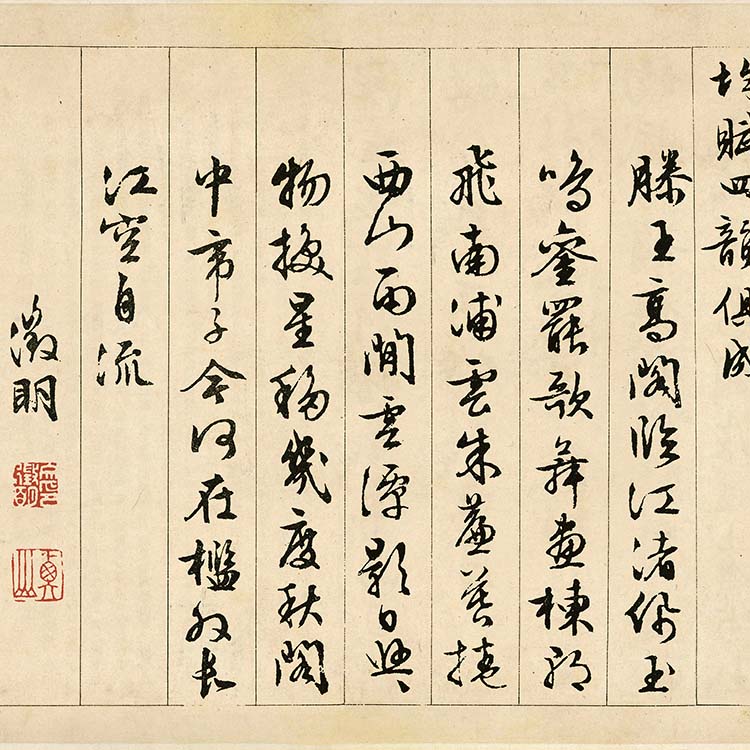 均賦四韻俱成
滕王高閣臨江渚佩玉
鳴鑾罷歌舞畫棟朝
飛南浦雲朱簾暮捲
西山雨閒雲潭影日悠〻
物換星移幾度秋閣
中帝子今何在檻外長
江空自流
徵明
衡山